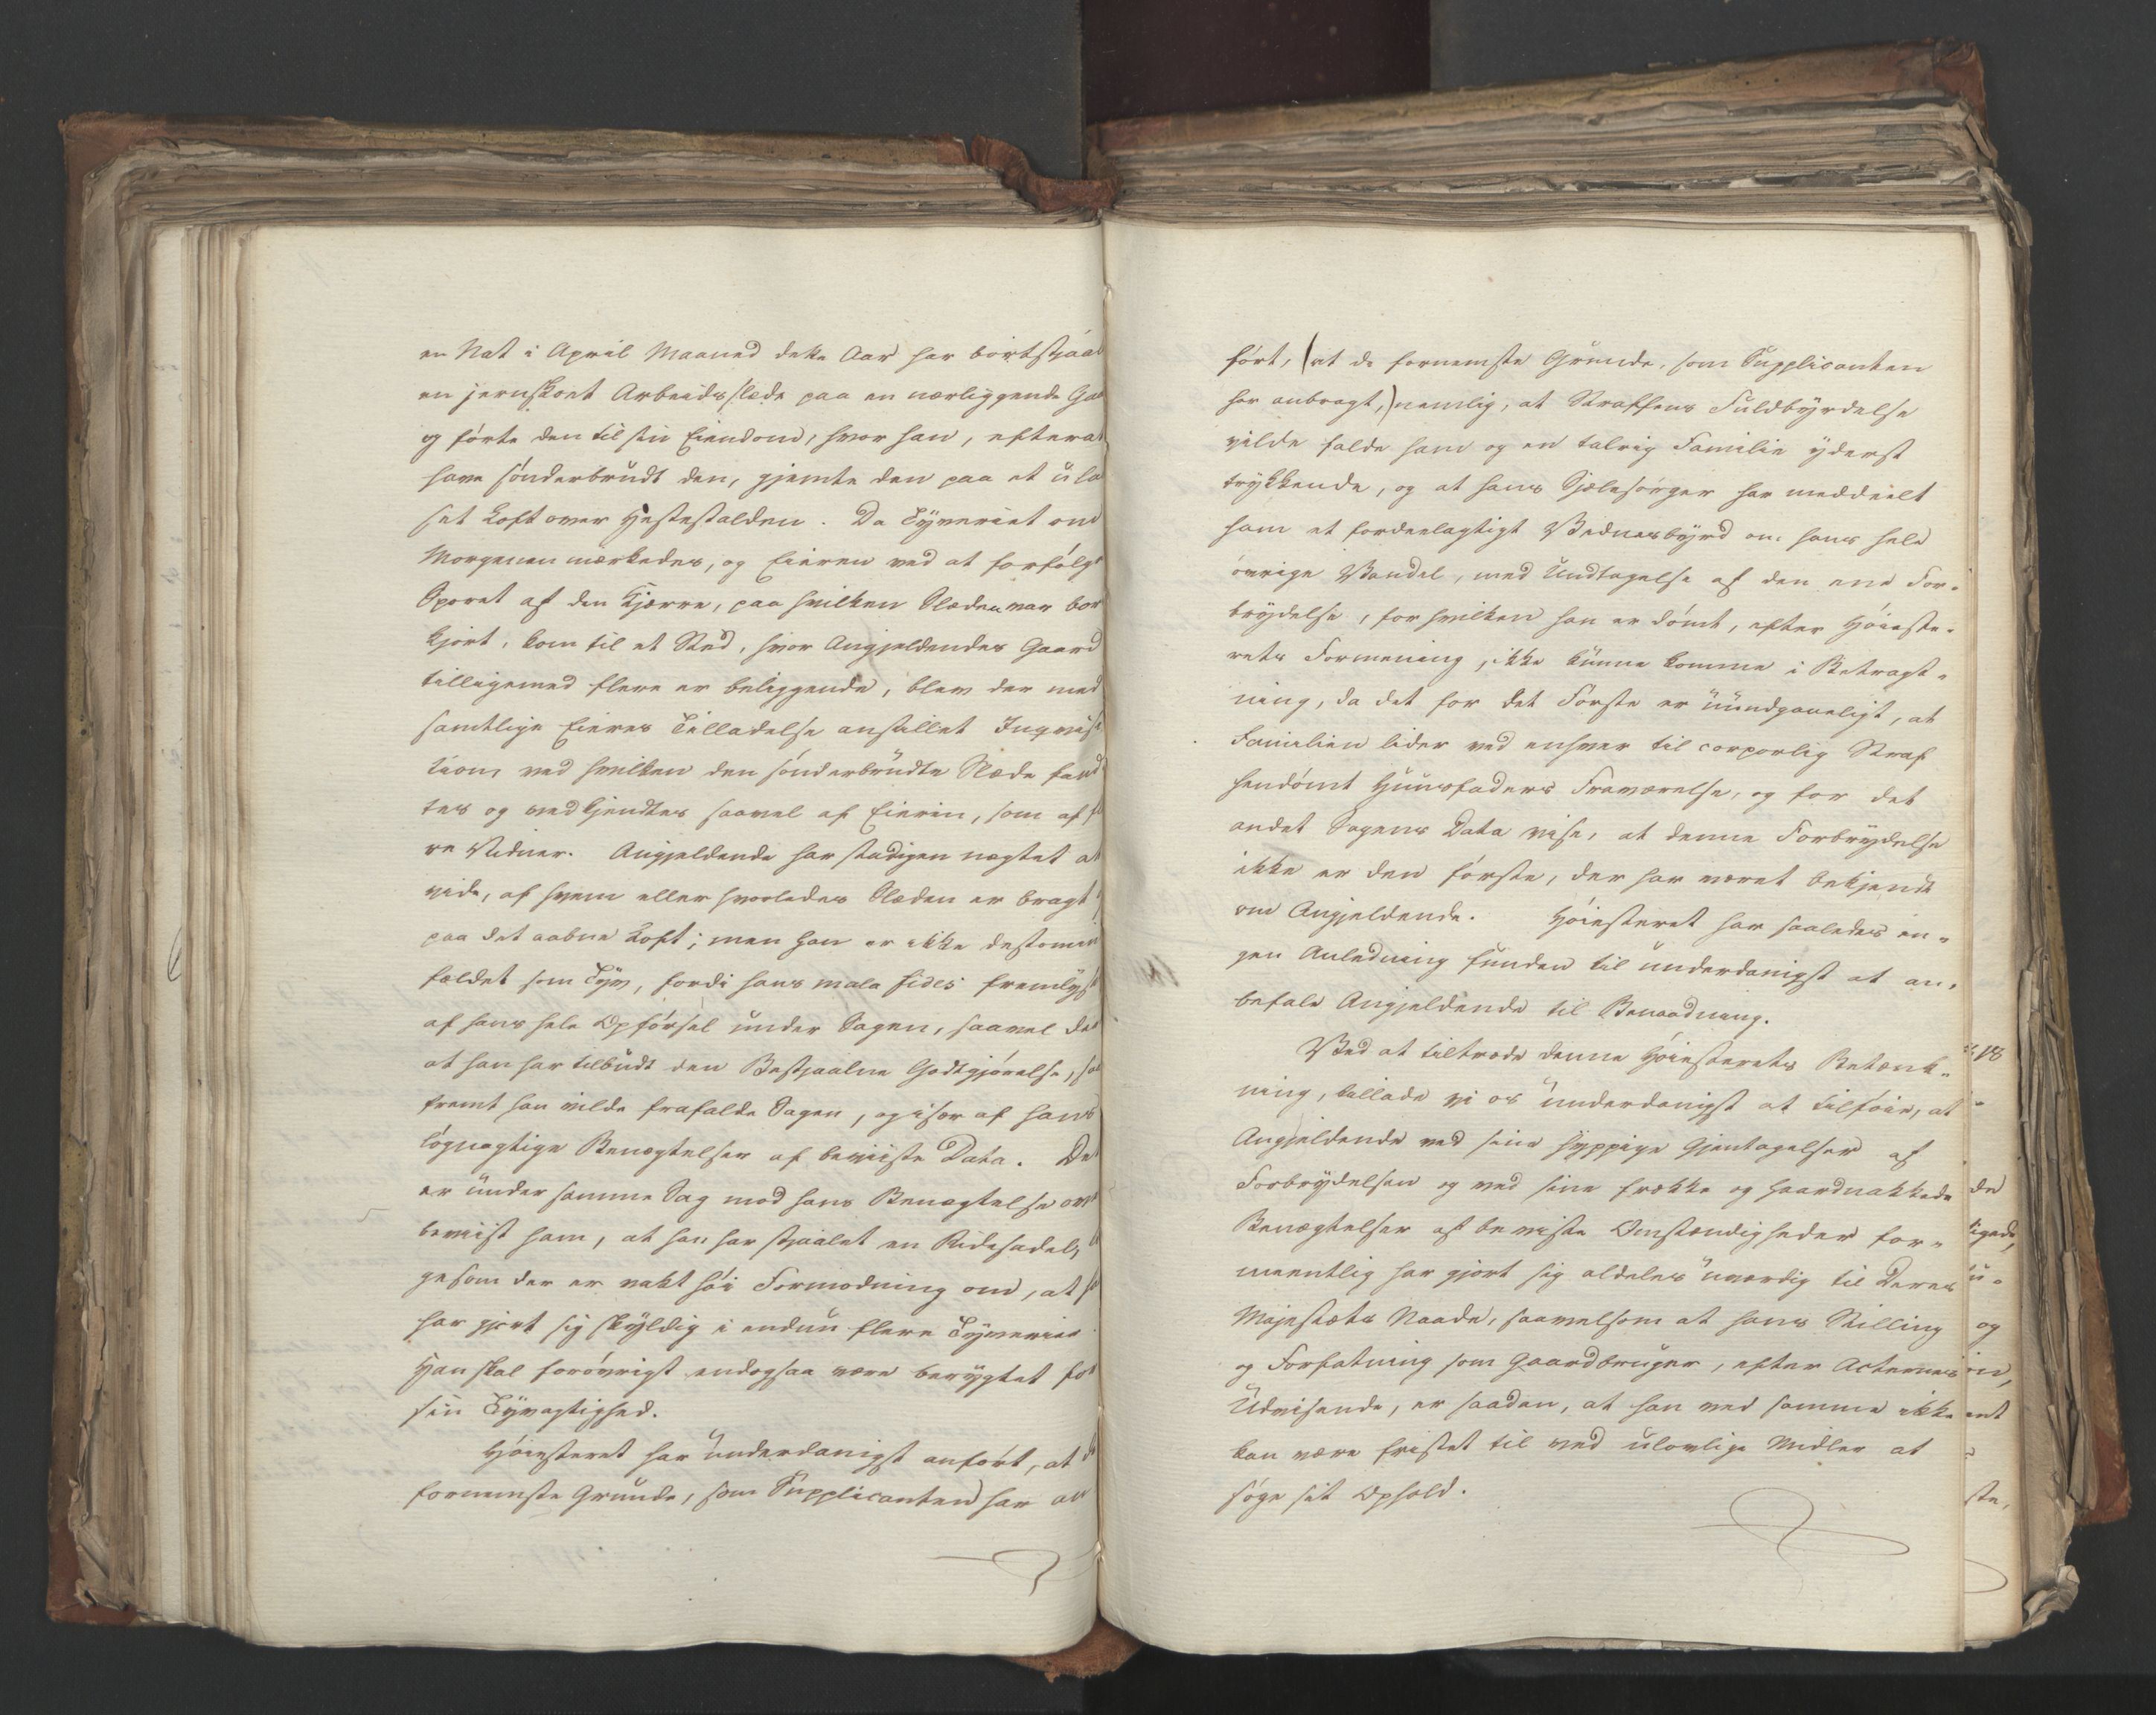 en Nat i April Maaned dette Aar har bortstjaal
en jernskoet Arbeidsslæde paa en nærliggende Gaa
og førte den til sin Eiendom, hvor han, efterat
have sønderbrudt den, gjemte den paa et ula
set Loft over Hestestalden. Da Tyveriet om
Morgenen mærkedes, og Eieren ved at forfølge
Sporet af den Kjærre, paa hvilken Slæden var bor
kjørt, kom til et Sted, hvor Angjeldendes Gaard
tilligemed flere er beliggende, blev der med
samtlige Eieres Tilladelse anstillet Inqvisi
tion, ved hvilken den sønderbrudte Slæde fand
tes og vedkjendtes saavel af Eieren, som af f
re Vidner. Angjeldende har stadigen nægtet at
vide, af hvem eller hvorledes Slæden er bragt
paa det aabne Loft; men han er ikke destomin
fældet som Tyv, fordi hans mala fides fremlyse
af hans hele Opførsel under Sagen, saavel de
at han har tilbudt den Bestjaalne Godtgjørelse, saa
fremt han vilde frafalde Sagen, og især af hans
løgnagtige Benægtelser af beviiste Data. De
er under samme Sag mod hans Benægtelse ove
beviist ham, at han har stjaalet en Ridesadel,
gesom der er vakt høi Formodning om, at
har gjort sig skyldig i endnu flere Tyverier
Han skal forøvrigt endogsaa være berygtet for
sin Tyvagtighed.
Høiesteret har underdanigst anført, at d
fornemste Grunde, som Supplicanten har an
ført, (at de fornemste Grunde, som Supplicanten
har anbragt,) nemlig, at Straffens Fuldbyrdelse
vilde falde ham og en talrig Familie yderst
trykkende, og at hans Sjælesørger har meddeelt
ham et fordeelagtigt Vidnesbyrd om hans hele
øvrige Vandel, med Undtagelse af den ene For-
brydelse, for hvilken han er dømt, efter Høieste-
rets Formening, ikke kunne komme i Betragt-
ning, da det for det Første er uundgaaeligt, at
Familien lider ved enhver til corporlig Straf
hendømt Huusfaders Fraværelse, og for det
andet Sagens Data vise, at denne Forbrydelse
ikke er den første, der har været bekjendt
om Angjeldende. Høiesteret har saaledes in-
gen Anledning funden til underdanigst at an-
befale Angjeldende til Benaadning.
Ved at tiltræde denne Høiesterets Betænk-
ning, tillade vi os underdanigst at tilføie, at
Angjeldende ved sine hyppige Gjentagelser af
Forbrydelsen og ved sine frække og haardnakkede
Benægtelser af beviste Omstændigheder for-
meentlig har gjort sig aldeles uværdig til Deres
Majestæts Naade, saavelsom at hans Stilling
og Forfatning som Gaardbruger, efter Acternes
Udvisende, er saadan, at han ved samme ikke
kan være fristet til ved ulovlige Midler at
søge sit Ophold.
18
de
igede,
u-
og
on,
ent
ste,